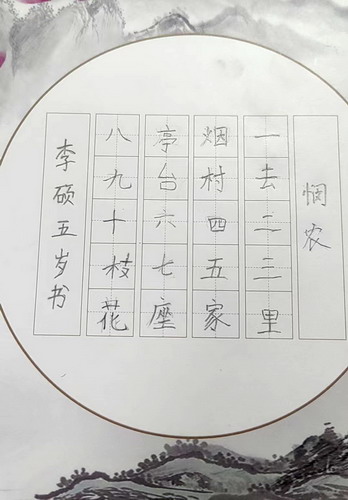 悯农
一去二三里
烟村四五家
亭台六七座
八九十枝花
李硕五岁书